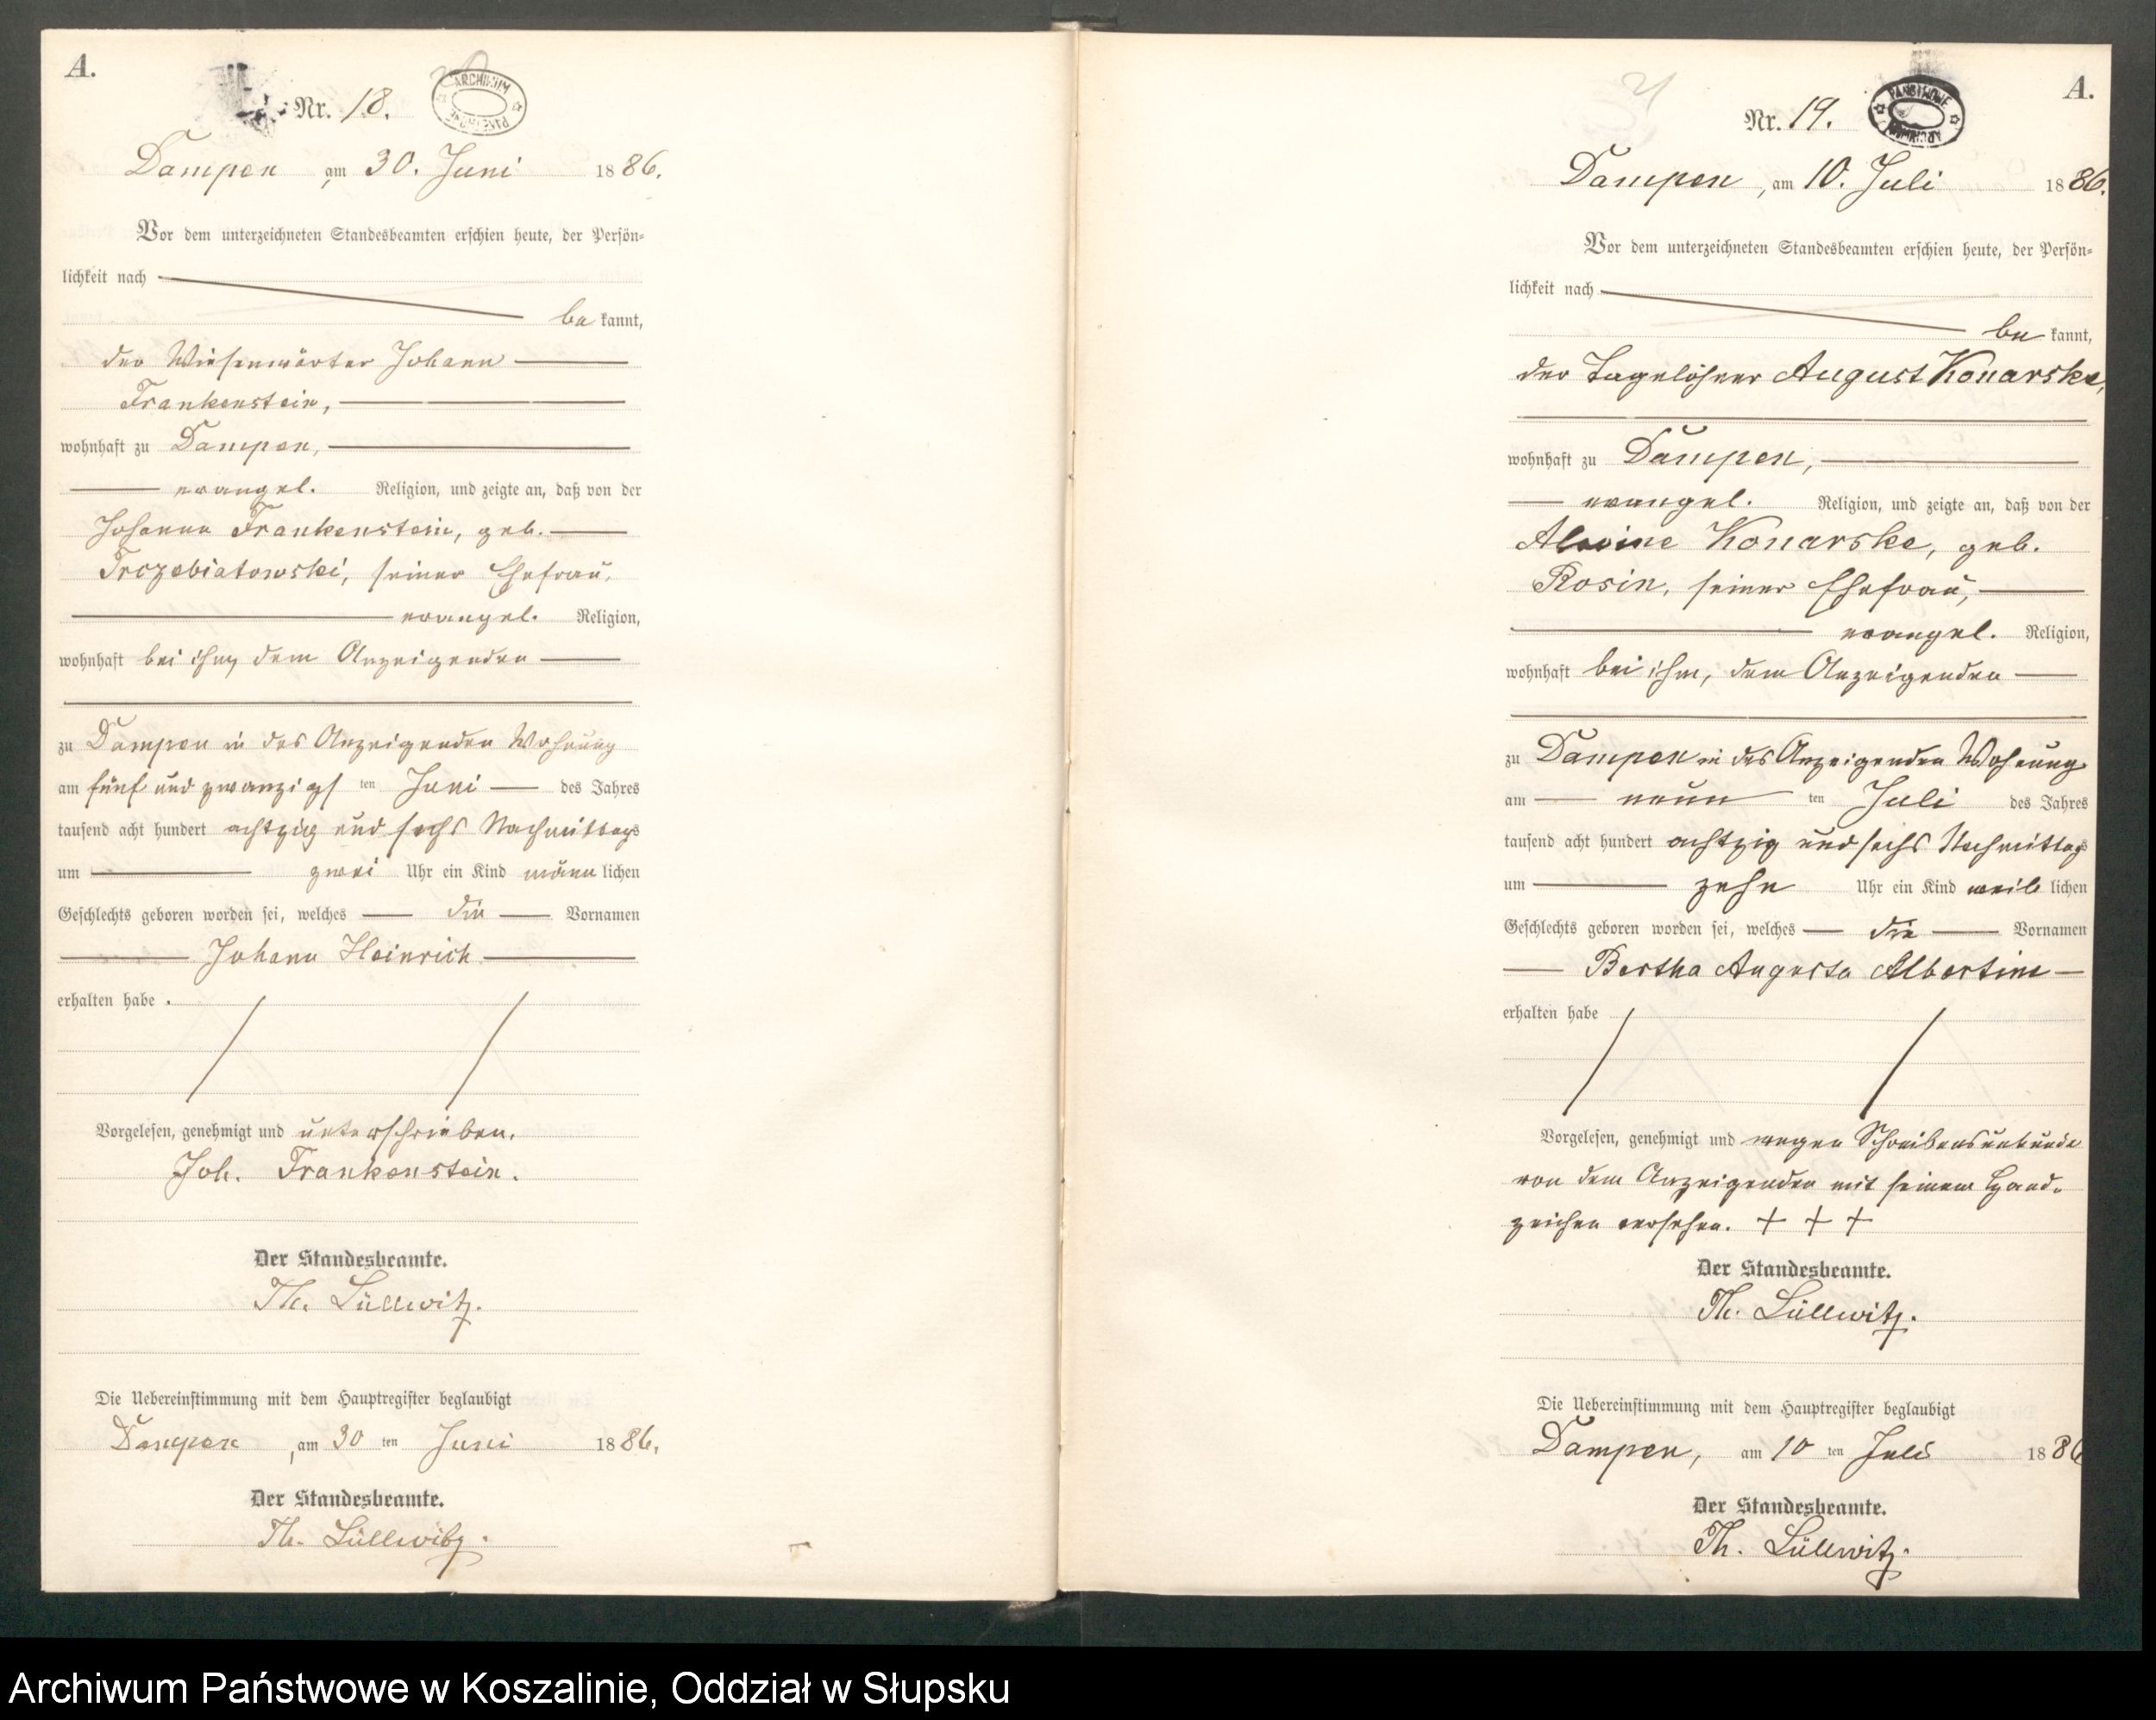 A.
Nr. 18.
ARCHIWUM PAŃSTWOWE
Dampen am 30. Juni 1886.
Vor dem unterzeichneten Standesbeamten erschien heute, der Persön-
lichkeit nach
bekannt,
der Wiesenwärter Johann
Frankenstein,
wohnhaft zu Dampen,
evangel. Religion, und zeigte an, daß von der
Johanna Frankenstein, geb.
Trczebiatowski, seiner Ehefrau,
evangel. Religion,
wohnhaft bei ihm, dem Anzeigenden
zu Dampen in des Anzeigenden Wohnung
am fünf und zwanzigsten Juni des Jahres
tausend acht hundert achtzig und sechs Nachmittags
um zwei Uhr ein Kind männlichen
Geschlechts geboren worden sei, welches die Vornamen
Johann Heinrich
erhalten habe.
Vorgelesen, genehmigt und unterschrieben.
Joh. Frankenstein.
Der Standesbeamte.
Th. Lüllwitz.
Die Uebereinstimmung mit dem Hauptregister beglaubigt
Dampen, am 30ten Juni 1886.
Der Standesbeamte.
Th. Lüllwitz.
21
A.
Nr. 19.
PAŃSTWOWE ARCHIWUM
Dampen, am 10. Juli 1886.
Vor dem unterzeichneten Standesbeamten erschien heute, der Persön-
lichkeit nach
bekannt,
der Tagelöhner August Konarske,
wohnhaft zu Dampen,
evangel. Religion, und zeigte an, daß von der
Alwine Konarske, geb.
Rosin, seiner Ehefrau,
evangel. Religion,
wohnhaft bei ihm, dem Anzeigenden
zu Dampen in des Anzeigenden Wohnung
am neunten Juli des Jahres
tausend acht hundert achtzig und sechs Nachmittags
um zehn Uhr ein Kind weiblichen
Geschlechts geboren worden sei, welches die Vornamen
Bertha Augusta Albertine
erhalten habe
Vorgelesen, genehmigt und wegen Schreibensunkunde
von dem Anzeigenden mit seinem Hand-
zeichen versehen. + + +
Der Standesbeamte.
Th. Lüllwitz.
Die Uebereinstimmung mit dem Hauptregister beglaubigt
Dampen, am 10ten Juli 1886
Der Standesbeamte.
Th. Lüllwitz.
Archiwum Państwowe w Koszalinie, Oddział w Słupsku